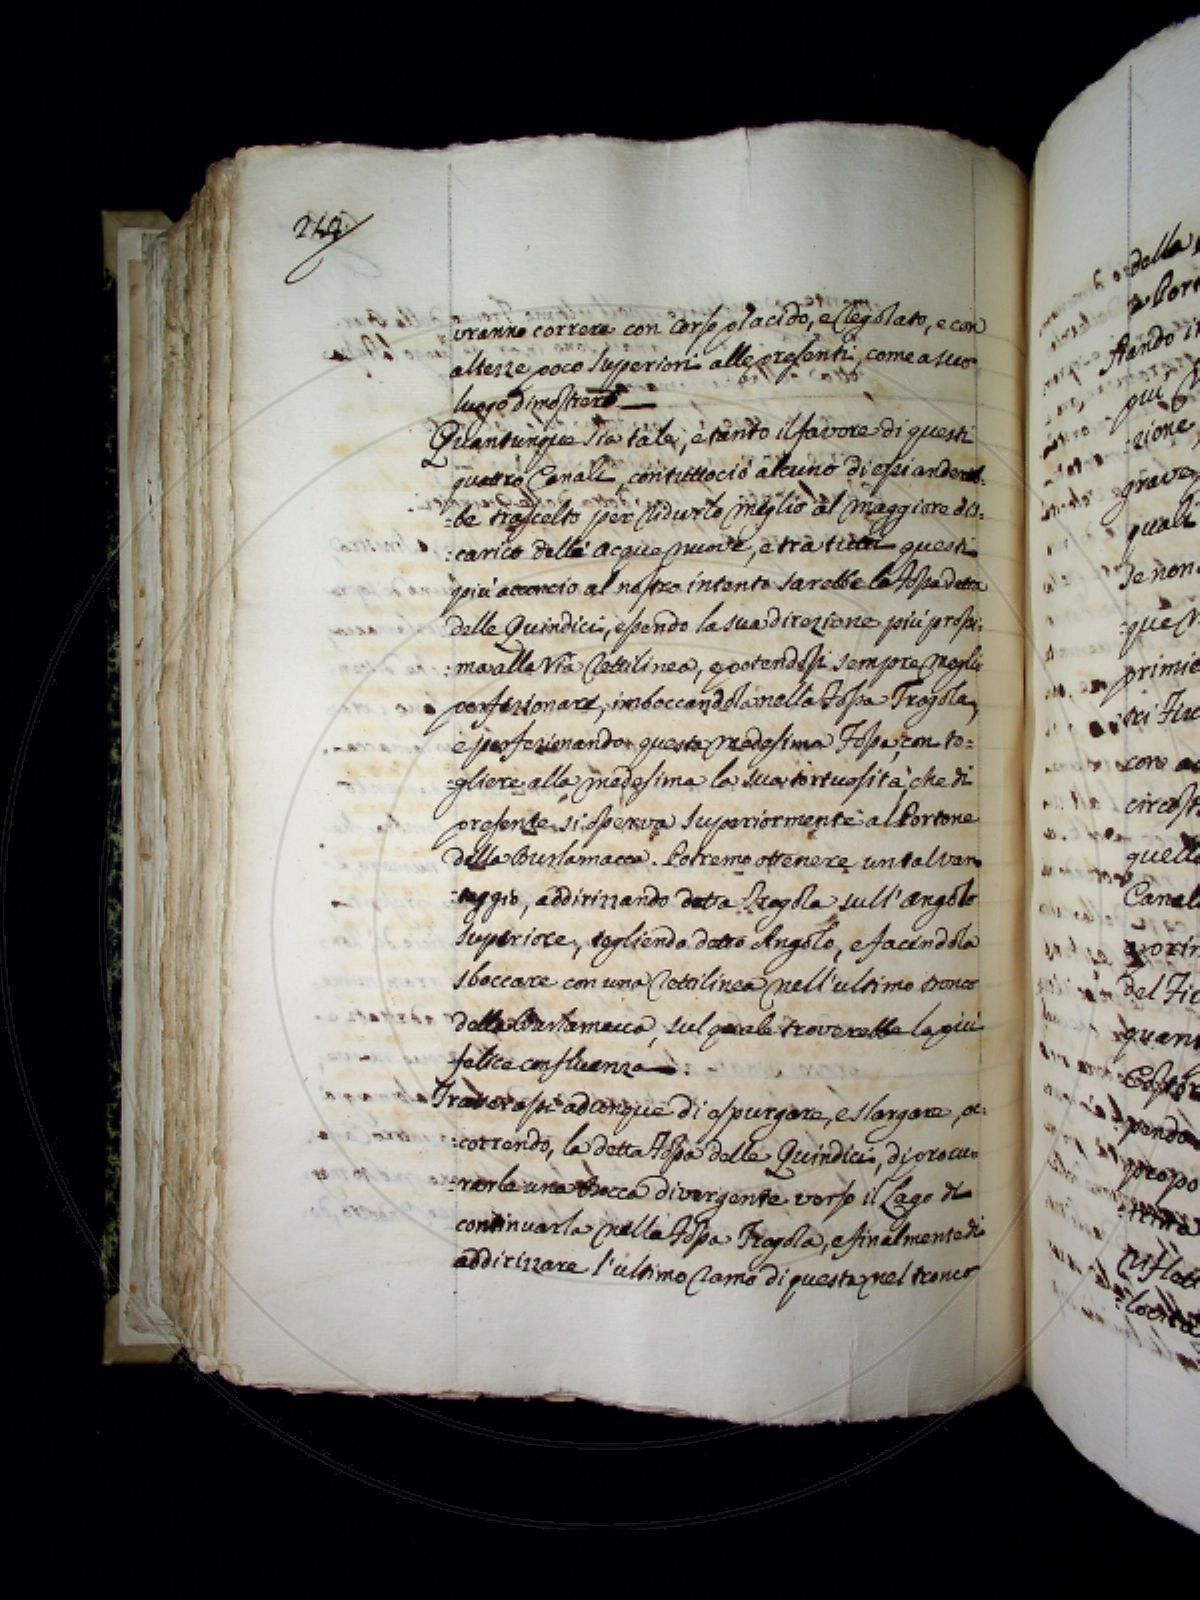 242.
vranno correre con Corso placido, e Regolato, e con
altezze poco superiori alle presenti, come a suo
luogo dimostrerò
Quantunque sia tale, e tanto il favore di questi
quattro Canali, contuttociò alcuno di essi andereb:
:be trascelto per ridurlo meglio al maggiore dis:
:carico delle Acque nuove, e tra tutti questi
più acconcio al nostro intento sarebbe la Fossa detta
delle Quindici, essendo la sua direzione più prossi:
:ma alla Via Rettilinea, e potendosi sempre meglio
perfezionare, imboccandola nella Fossa Fragola,
e perfezionando questa medesima Fossa, con to:
:gliere alla medesima la sua tortuosità, che di
presente si osserva superiormente al Portone
della Burlamacca. Potremo ottenere un tal van
:taggio, addirizzando detta Fragola sull'Angolo
superiore, togliendo detto Angolo, e facendola
sboccare con una Rettilinea nell'ultimo tronco
della Burlamacca, sul quale troverebbe la più
felice confluenza.
Tratterassi adunque di espurgare, e slargare, oc:
:correndo, la detta Fossa delle Quindici, di procu
:rarle una Bocca divergente verso il Lago di
continuarla nella Fossa Fragola, e finalmente di
addirizzare l'ultimo ramo di questa nel tronco
della
a Port
stando i
più
:zione,
grave,
quali
se non
:que
primie
tri
core a
circost
quello
Canal
del
quan
pendo
propo